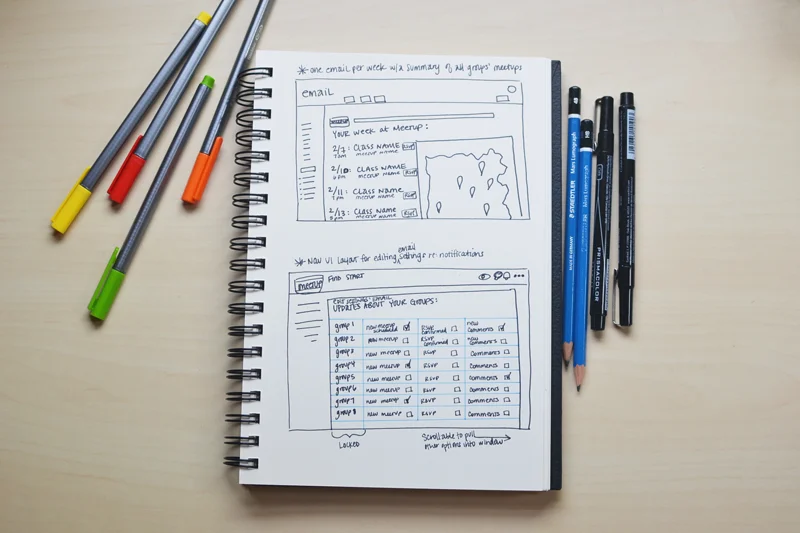 *one email per week w/a summary of all groups' meetups
email
meetup
YOUR week at meetup:
2/7: CLASS NAME RSVP
7pm meetup name
2/10: CLASS NAME RSVP
meetup name
2/11: CLASS NAME RSVP
7pm meetup name
2/13: CLASS NAME RSVP
meetup name
*New UI layout for editing email settings re: notifications
meetup FIND START
edit settings: EMAIL
UPDATES ABOUT YOUR GROUPS:
group 1 new meetup scheduled RSVP confirmed new comments
group 2 new meetup RSVP confirmed new comments
group 3 new meetup RSVP comments
group 4 new meetup RSVP comments
group 5 new meetup RSVP comments
group 6 new meetup RSVP comments
group 7 new meetup RSVP comments
group 8 new meetup RSVP comments
LOCKED
Scrollable to pull
other options into window
STAEDTLER Mars Lumograph
Mars Lumograph
PRISMACOLOR